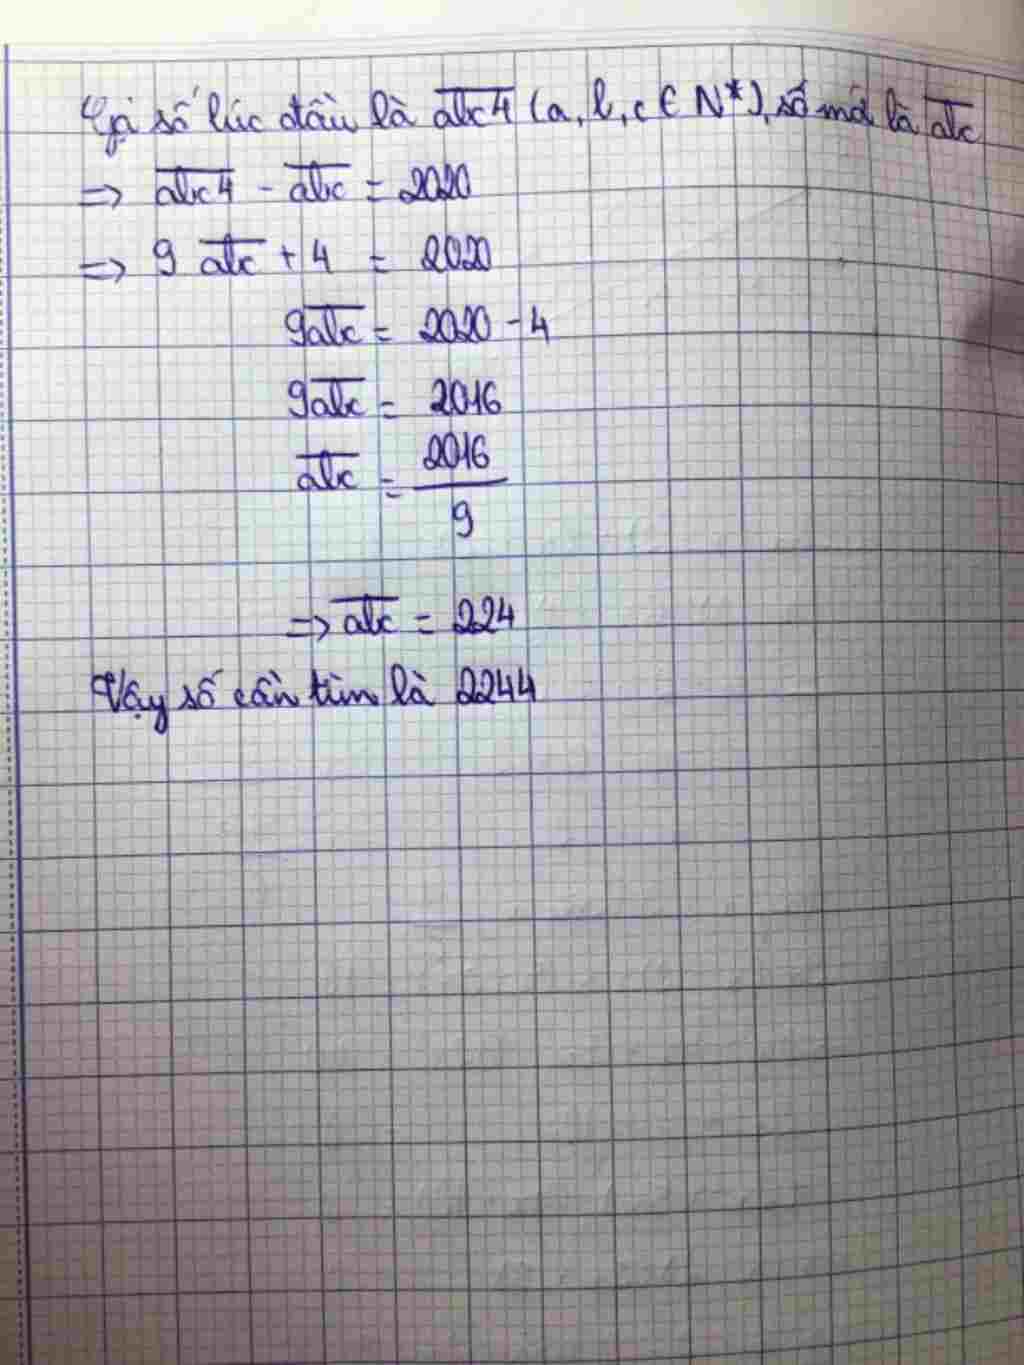 Gọi số lúc đầu là a̅b̅c̅4̅ (a, b, c ∈ N*), số mới là a̅b̅c̅
=> a̅b̅c̅4̅ - a̅b̅c̅ = 2020
=> 9 a̅b̅c̅ + 4 = 2020
9a̅b̅c̅ = 2020 - 4
9a̅b̅c̅ = 2016
a̅b̅c̅ = 2016/9
=> a̅b̅c̅ = 224
Vậy số cần tìm là 2244